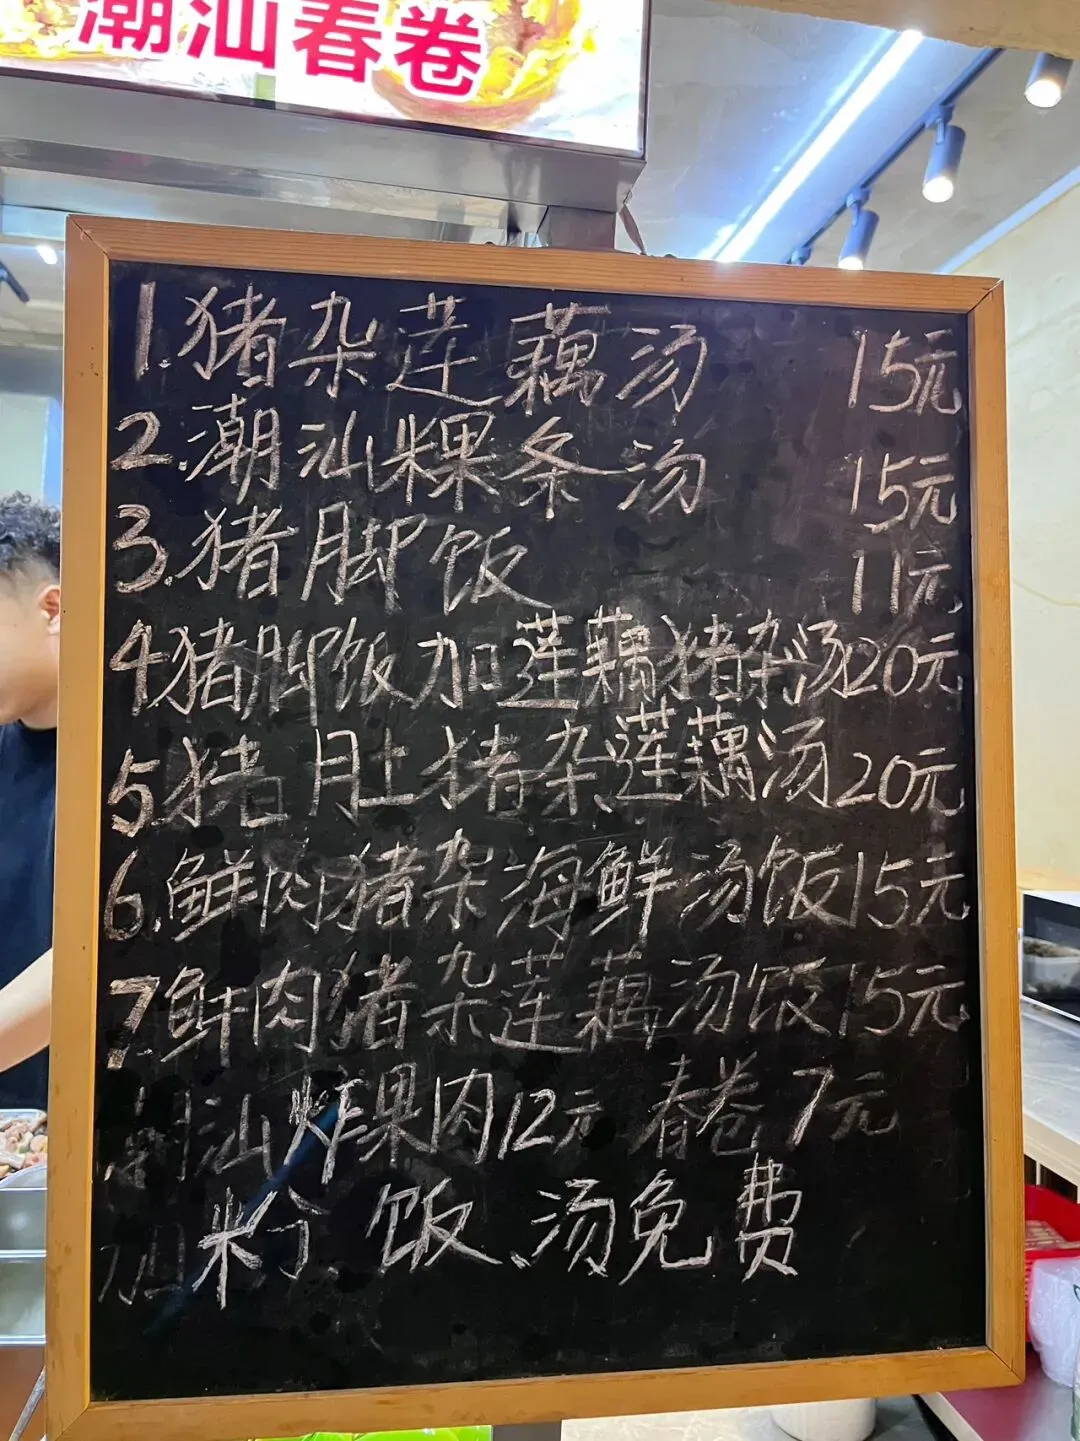 潮汕春卷
1.猪杂莲藕汤 15元
2.潮汕粿条汤 15元
3.猪脚饭 11元
4猪脚饭加莲藕猪杂汤20元
5猪肚猪杂莲藕汤20元
6.鲜肉猪杂海鲜汤饭15元
7.鲜肉猪杂莲藕汤饭15元
潮汕炸果肉12元 春卷7元
加粉、饭、汤免费